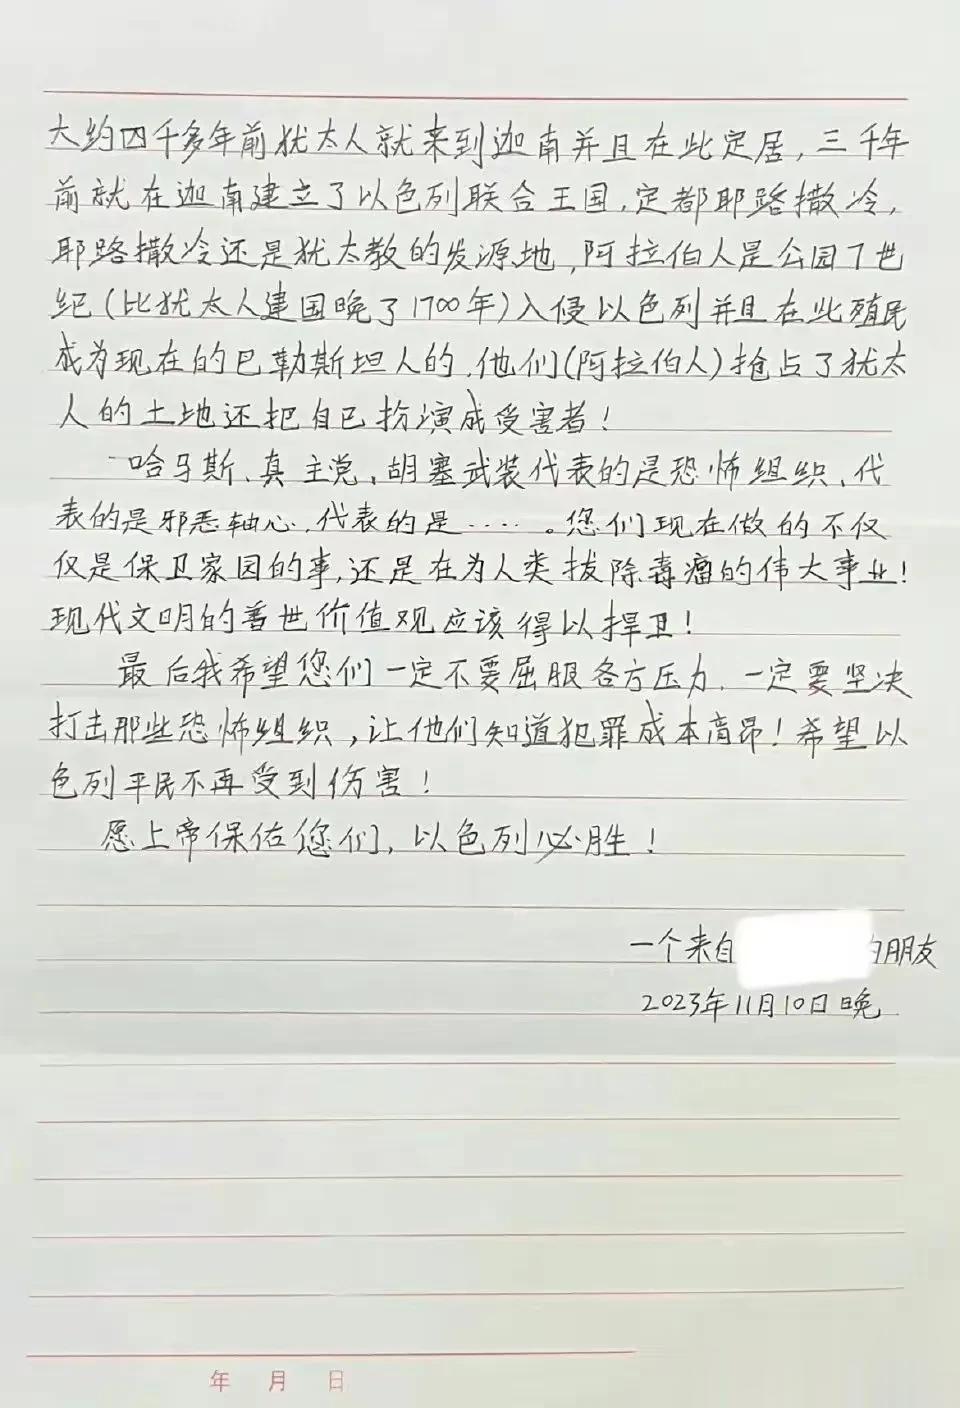 大约四千多年前犹太人就来到迦南并且在此定居，三千年
前就在迦南建立了以色列联合王国，定都耶路撒冷，
耶路撒冷还是犹太教的发源地，阿拉伯人是公园7世
纪（比犹太人建国晚了1700年）入侵以色列并且在此殖民
成为现在的巴勒斯坦人的，他们（阿拉伯人）抢占了犹太
人的土地还把自己扮演成受害者！
哈马斯、真主党、胡塞武装代表的是恐怖组织、代
表的是邪恶轴心、代表的是……。您们现在做的不仅
仅是保卫家园的事，还是在为人类拔除毒瘤的伟大事业！
现代文明的普世价值观应该得以捍卫！
最后我希望您们一定不要屈服各方压力，一定要坚决
打击那些恐怖组织，让他们知道犯罪成本高昂！希望以
色列平民不再受到伤害！
愿上帝保佑您们，以色列必胜！
一个来自 的朋友
2023年11月10日晚
年 月 日